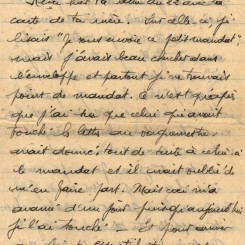 Reçu hier ta lettre du 22 avec la
carte de ta mère. Sur elle, où je
lisais "Je vous envoie ce petit mandat"
mais j'avais beau chercher dans
l'enveloppe et partout je ne trouvais
point de mandat. Ce n'est qu'après
que j'ai su que celui qui avait
touché la lettre au vaguemestre
avait donné tout de suite à celui-ci
le mandat et il avait oublié de
m'en faire part. Mais ça m'a
avancé d'un jour puisqu'aujourd'hui
je l'ai touché. Et pour